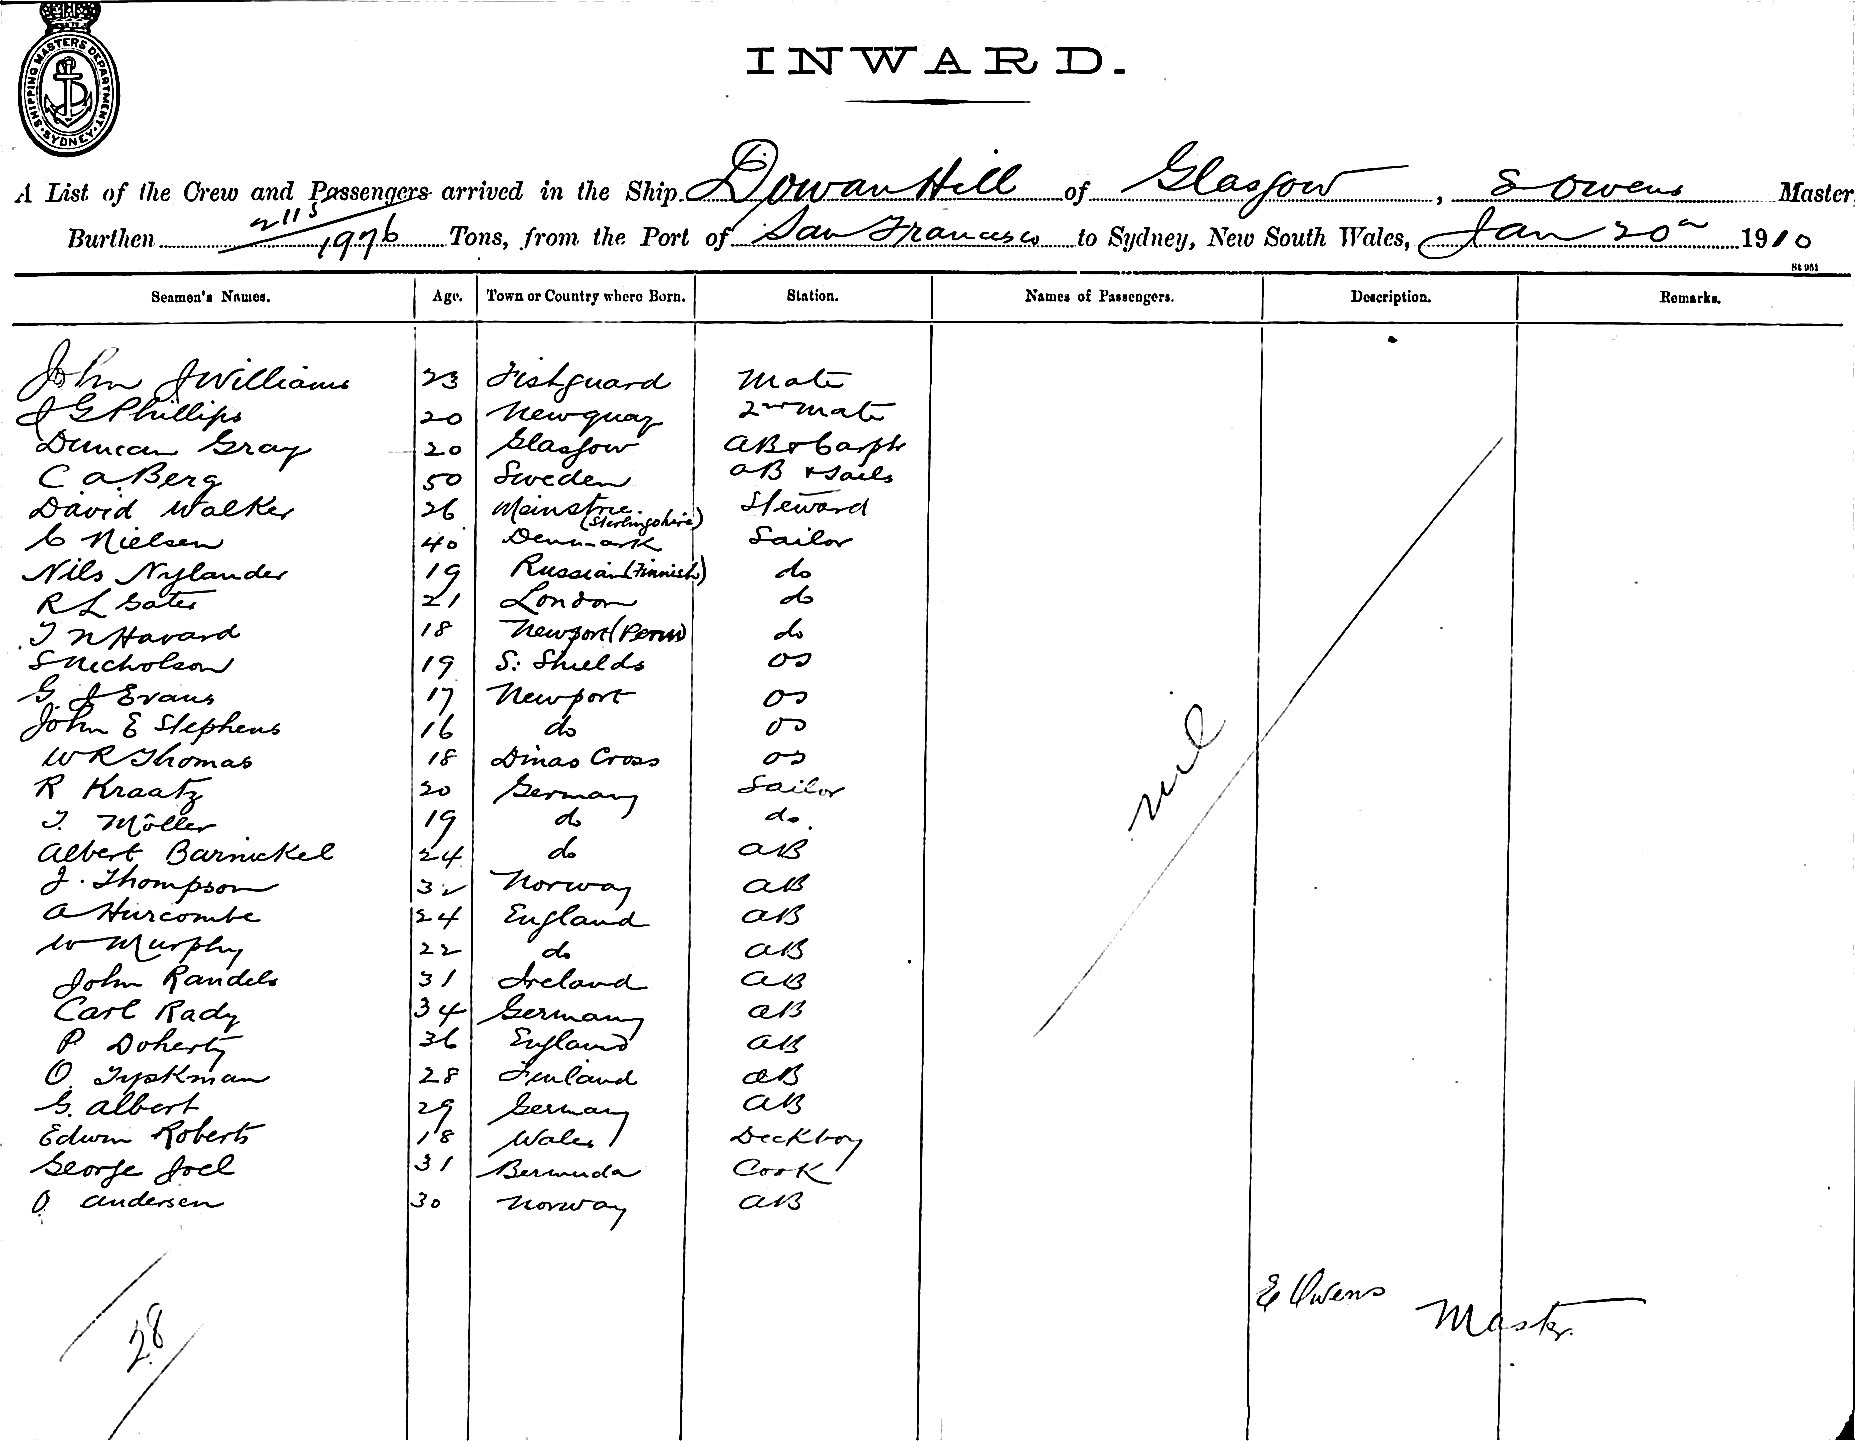 SHIPPING MASTERS DEPARTMENT. SYDNEY
INWARD.
A List of the Crew and Passengers arrived in the Ship Dowan Hill of Glasgow, E Owens Master,
Burthen 2115/1976 Tons, from the Port of San Francisco to Sydney, New South Wales, Jan 20 1910
St 961
Seamen's Names. Age. Town or Country where Born. Station. Names of Passengers. Description. Remarks.
John J Williams 23 Fishguard Mate
J G Phillips 20 Newquay 2nd Mate
Duncan Gray 20 Glasgow AB & Carptr
C A. Berg 50 Sweden AB & Sails
David Walker 26 Menstrie. (Sterlingshire) Steward
C Nielsen 40 Denmark Sailor
Nils Nylander 19 Russian (Finnish) do
R L Gates 21 London do
T N Havard 18 Newport (Pem) do
S Nicholson 19 S. Shields OS
G. J Evans 17 Newport OS
John E Stephens 16 do OS
W R Thomas 18 Dinas Cross OS
R Kraatz 20 Germany Sailor
T. Möller 19 do do.
Albert Barnickel 24 do AB
J. Thompson 32 Norway AB
A Hurcombe 24 England AB
W Murphy 22 do AB
John Randels 31 Ireland AB
Carl Rady 34 Germany AB
P Doherty 36 England AB
O Tyskman 28 Finland AB
G. Albert 29 Germany AB
Edwin Roberts 18 Wales Deckboy
George Joel 31 Bermuda Cook
O. Andersen 30 Norway AB
nil
E Owens Master
28